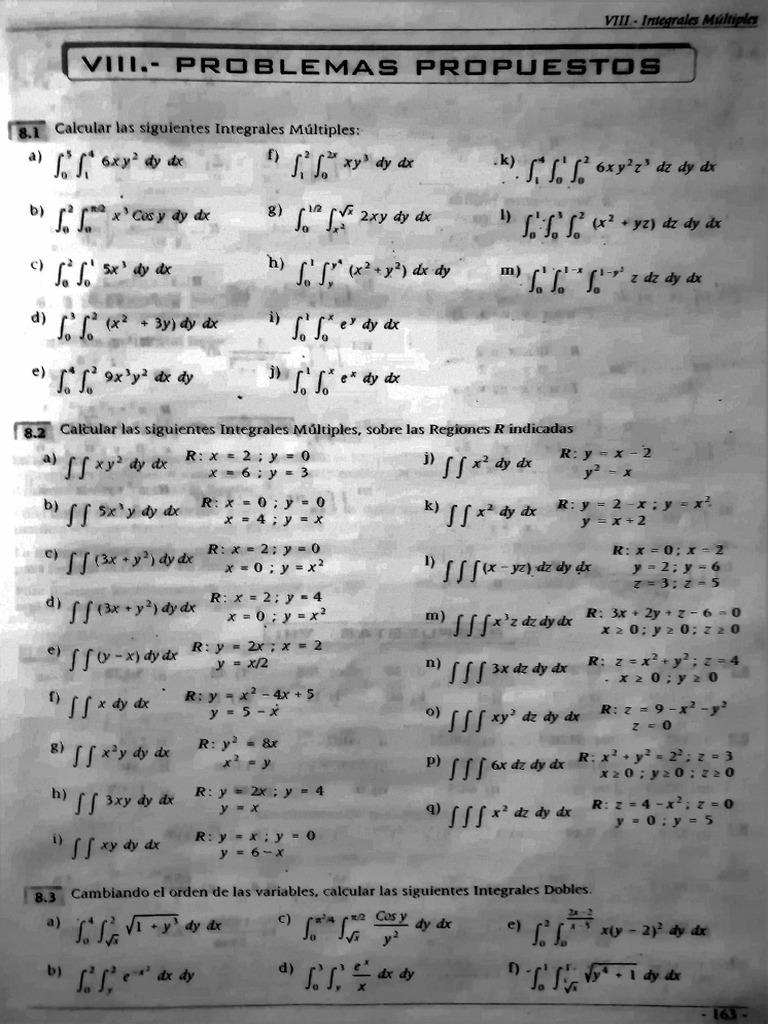 VIII.- Integrales Múltiples
VIII.- PROBLEMAS PROPUESTOS
8.1 Calcular las siguientes Integrales Múltiples:
a) ∫₀⁵ ∫₁⁴ 6xy² dy dx
b) ∫₀² ∫₀^(π/2) x³ Cos y dy dx
c) ∫₀² ∫₀¹ 5x³ dy dx
d) ∫₀³ ∫₀² (x² + 3y) dy dx
e) ∫₀⁴ ∫₀² 9x³y² dx dy
f) ∫₁² ∫₀^(2x) xy³ dy dx
g) ∫₀^(1/2) ∫_(x²)^(√x) 2xy dy dx
h) ∫₀¹ ∫_y^(y⁴) (x² + y²) dx dy
i) ∫₀¹ ∫₀ˣ e^y dy dx
j) ∫₀¹ ∫₀ˣ e^x dy dx
k) ∫₁⁴ ∫₀¹ ∫₀² 6xy²z³ dz dy dx
l) ∫₀¹ ∫₀³ ∫₀² (x² + yz) dz dy dx
m) ∫₀¹ ∫₀^(1-x) ∫₀^(1-y²) z dz dy dx
8.2 Calcular las siguientes Integrales Múltiples, sobre las Regiones R indicadas
a) ∫∫ xy² dy dx R: x = 2 ; y = 0
x = 6 ; y = 3
b) ∫∫ 5x³y dy dx R: x = 0 ; y = 0
x = 4 ; y = x
c) ∫∫ (3x + y²) dy dx R: x = 2 ; y = 0
x = 0 ; y = x²
d) ∫∫ (3x + y²) dy dx R: x = 2 ; y = 4
x = 0 ; y = x²
e) ∫∫ (y – x) dy dx R: y = 2x ; x = 2
y = x/2
f) ∫∫ x dy dx R: y = x² – 4x + 5
y = 5 – x
g) ∫∫ x²y dy dx R: y² = 8x
x² = y
h) ∫∫ 3xy dy dx R: y = 2x ; y = 4
y = x
i) ∫∫ xy dy dx R: y = x ; y = 0
y = 6 – x
j) ∫∫ x² dy dx R: y = x – 2
y² = x
k) ∫∫ x² dy dx R: y = 2 – x ; y = x²
y = x + 2
l) ∫∫∫ (x – yz) dz dy dx R: x = 0 ; x = 2
y = 2 ; y = 6
z = 3 ; z = 5
m) ∫∫∫ x³z dz dy dx R: 3x + 2y + z – 6 = 0
x ≥ 0 ; y ≥ 0 ; z ≥ 0
n) ∫∫∫ 3x dz dy dx R: z = x² + y² ; z = 4
x ≥ 0 ; y ≥ 0
o) ∫∫∫ xy² dz dy dx R: z = 9 – x² – y²
z = 0
p) ∫∫∫ 6x dz dy dx R: x² + y² = 2² ; z = 3
x ≥ 0 ; y ≥ 0 ; z ≥ 0
q) ∫∫∫ x² dz dy dx R: z = 4 – x² ; z = 0
y = 0 ; y = 5
8.3 Cambiando el orden de las variables, calcular las siguientes Integrales Dobles.
a) ∫₀⁴ ∫_(√x)² √(1 + y³) dy dx
b) ∫₀² ∫_y² e^(-x²) dx dy
c) ∫₀^(π²/4) ∫_(√x)^(π/2) Cos y / y² dy dx
d) ∫₀³ ∫_y³ e^x / x dx dy
e) ∫₀² ∫₀^((2x-2)/(x-5)) x(y – 2)² dy dx
f) ∫₀¹ ∫ √(y⁴ + 1) dy dx
- 163 -